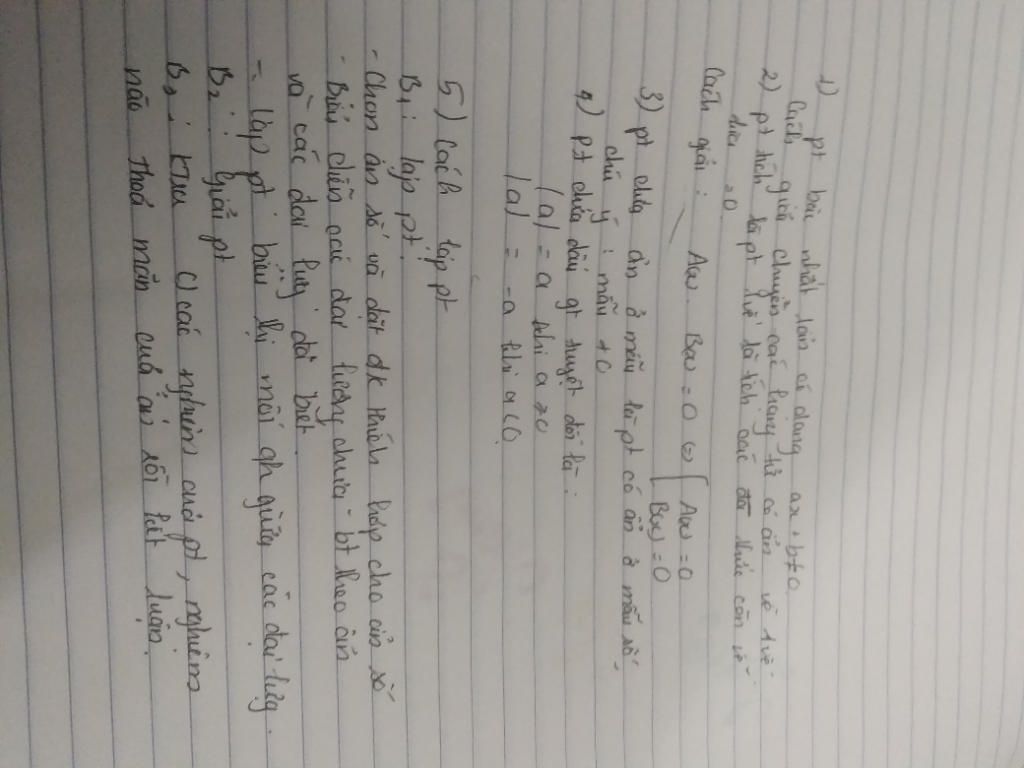 1) pt bậc nhất 1 ẩn có dạng ax + b ≠ 0
Cách giải chuyển các hạng tử có ẩn về 1 vế
2) pt tích là pt 1 vế là tích các đa thức còn vế
kia = 0
Cách giải: A(x) . B(x) = 0 ⇔ [ A(x) = 0
B(x) = 0
3) pt chứa ẩn ở mẫu là pt có ẩn ở mẫu số
chú ý : mẫu ≠ 0
4) pt chứa dấu gt tuyệt đối là :
|a| = a khi a ≥ 0
|a| = -a khi a < 0
5) Cách lập pt
B1 : lập pt
- Chọn ẩn số và đặt đk thích hợp cho ẩn số
- Biểu diễn các đại lượng chưa - bt theo ẩn
và các đại lượng đã biết
- lập pt biểu thị mối qh giữa các đại lượng
B2 : Giải pt
B3 : các nghiệm của pt, nghiệm
nào thoả mãn của ẩn rồi kết luận.